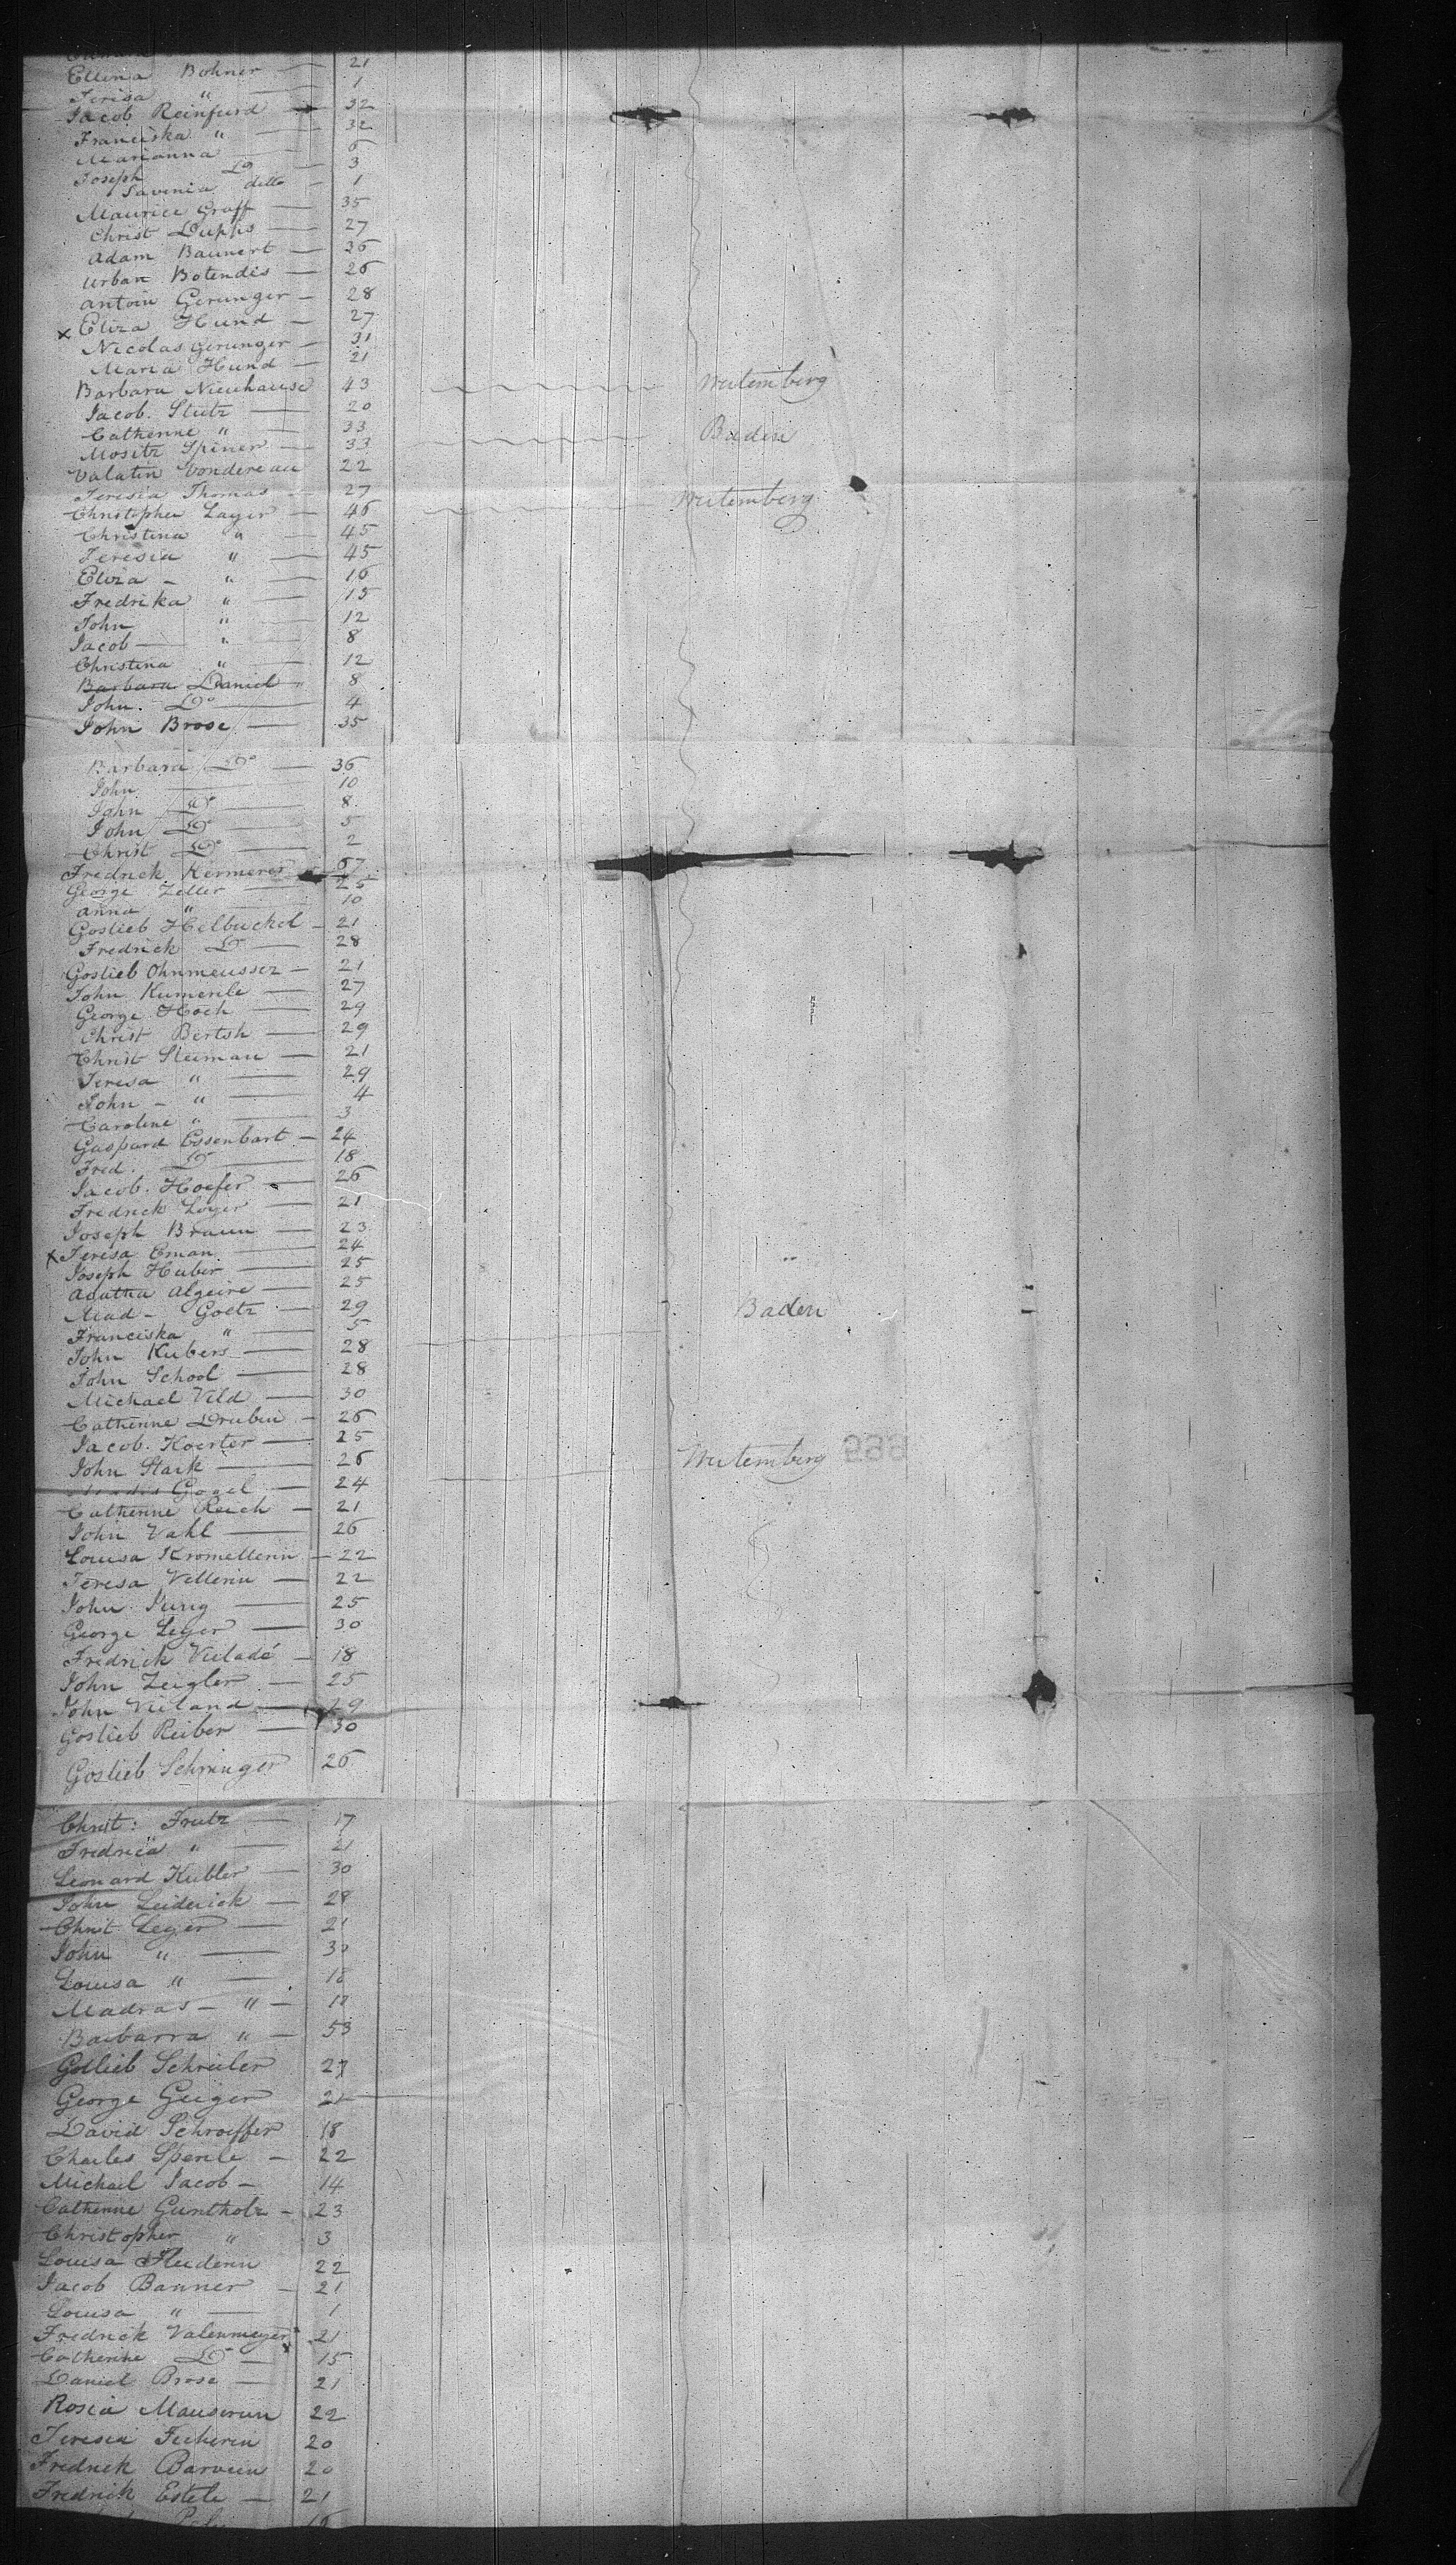 Ellena Bohner — 21
Teresa " — 1
Jacob Reinfurd — 32
Franciska " — 32
Marianna — 6
Joseph Do — 3
Savenia ditto — 1
Maurice Graff — 35
Christ Duppis — 27
Adam Baunert — 26
Urban Botendis — 26
Antoin Gerunger — 28
x Eliza Hund — 27
Nicolas Gerunger — 31
Maria Hund — 21
Barbara Nieuhause 43 Wutemberg
Jacob. Stutz — 20
Catherine " — 33
Mositz Spiner — 33 Baden
Valatin Vondereau 22
Teresia Thomas — 27
Christopher Layer — 46 Wutemberg
Christina " — 45
Teresia " — 45
Eliza – " — 16
Fredrika " — 15
John " — 12
Jacob — " — 8
Christina " — 12
Barbara Daniel 8
John. Do — 4
John Brose — 35
Barbara Do — 36
John — 10
John Do — 8
John Do — 5
Christ Do — 2
Fredrick Kermerer 67
George Zeller — 25
Anna " — 10
Goslieb Helbuckel – 21
Fredrick Do — 28
Goslieb Ohnmeusser – 21
John Kumerile — 27
George Hoch — 29
Christ Bertsh — 29
Christ Sleiman — 21
Teresa " — 29
John – " — 4
Caroline " — 3
Gaspard Essenbart – 24
Fred. Do — 18
Jacob. Hoefer — 26
Fredrick Loyer — 21
Joseph Braun — 23
x Teresa Eman — 24
Joseph Huber — 25
Agatha Algeire — 25
Mad – Goetz — 29 Baden
Franciska " — 5
John Kubers — 28
John School — 28
Michael Vild — 30
Catherine Drubin – 26
Jacob. Koerter — 25
John Stark — 26 Wutemberg
Gogel — 24
Catherine Reich — 21
John Vahl — 26
Louisa Kromellerin – 22
Teresa Vellerin — 22
John Jung — 25
George Leyer — 30
Fredrick Vieladé – 18
John Zeigler — 25
John Vieland — 29
Goslieb Reiber — 30
Goslieb Schringer 26
Christ: Frutz — 17
Fredrica " — 21
Leonard Kubler — 30
John Leiderick — 28
Christ Leyer — 21
John " — 30
Louisa " — 18
Madras – " – 18
Barbarra " — 53
Gotlieb Schreiler 27
George Geiger 21
David Schroeffer 18
Charles Sperile – 22
Michael Jacob – 14
Catherine Guntholz – 23
Christopher " 3
Louisa Fluderin 22
Jacob Banner – 21
Louisa " — 1
Fredrick Valenmeyer 21
Catherine Do — 15
Daniel Brose — 21
Rosia Mauserin 22
Teresia Ficherin 20
Fredrick Barvein 20
Fredrick Estele — 21